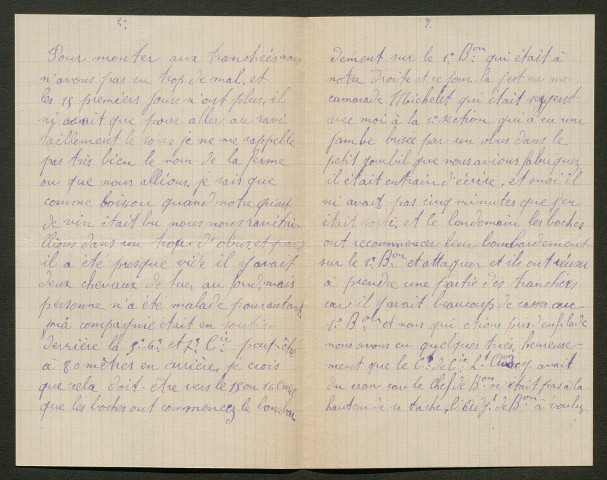 2.
Pour monter aux tranchées nous
n'avons pas eu trop de mal, et
les 15 premiers jours n'ont plus, il
n'y avait que pour aller au ravi
taillement le soir je ne me rappelle
pas très bien le nom de la ferme
ou que nous allions, je sais que
comme boisson quand notre quart
de vin était bu nous nous ravitai-
llions dans un trou d'obus, et quand
il a été presque vidé il y avait
deux chevaux de tués au fond, mais
personne n'a été malade pour autant
ma compagnie était en soutien
derrière la 5e 6e et 7e Cie peut-être
à 80 mètres en arrière, je crois
que cela doit-être vers le 15 ou 16
que les boches ont commencez le bombar
3.
dément sur le 1er Bon qui était à
notre droite et ce jour là j'est eu mon
camarade Michelet qui était sergent
avec moi à la section qui à eu une
jambe brisée par un obus dans le
petit gourbil que nous avions fabriquez
il était entrain d'écrire, et moi il
ni avait pas cinq minutes que j'en
était sorti, et le lendemain les boches
ont recommencez leur bombardement
sur le 1er Bon et attaquer et ils ont réussi
à prendre une partie des tranchées
car il y avait beaucoup de casse au
1er Bon et nous qui étions pris d'enfilade
nous avons eu quelques tués, heureuse-
ment que le Ct de Cie Lt avait
du cran car le Chef de Bon n'était pas à la
hauteur de sa tâche, l'Adjt de Bon à voulu